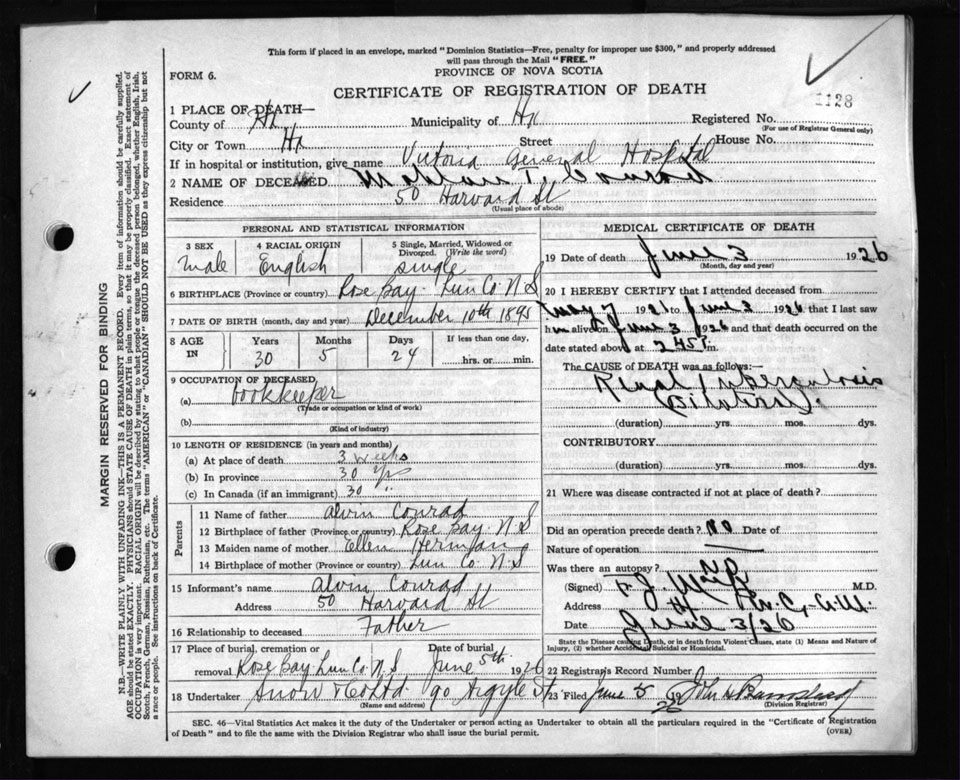 This form if placed in an envelope, marked "Dominion Statistics—Free, penalty for improper use $300," and properly addressed
will pass through the Mail "FREE."
FORM 6. PROVINCE OF NOVA SCOTIA
CERTIFICATE OF REGISTRATION OF DEATH
1128
1 PLACE OF DEATH—
County of Hx Municipality of Hx Registered No.
(For use of Registrar General only)
City or Town Hx Street House No.
If in hospital or institution, give name Victoria General Hospital
2 NAME OF DECEASED. Conrad
Residence 50 Harvard St
(Usual place of abode)
PERSONAL AND STATISTICAL INFORMATION
3 SEX 4 RACIAL ORIGIN 5 Single, Married, Widowed or
Divorced. (Write the word)
male English single
6 BIRTHPLACE (Province or country) Rose Bay Lun Co. N S
7 DATE OF BIRTH (month, day and year) December 10th 1895
8 AGE IN Years Months Days If less than one day,
30 5 24 hrs. or min.
9 OCCUPATION OF DECEASED
(a) bookkeeper
(Trade or occupation or kind of work)
(b)
(Kind of industry)
10 LENGTH OF RESIDENCE (in years and months)
(a) At place of death 3 weeks
(b) In province 30 yrs
(c) In Canada (if an immigrant) 30 "
Parents
11 Name of father Alvin Conrad
12 Birthplace of father (Province or country) Rose Bay N. S
13 Maiden name of mother Ellen Herman
14 Birthplace of mother (Province or country) Lun Co. N. S
15 Informant's name Alvin Conrad
Address 50 Harvard St
16 Relationship to deceased Father
17 Place of burial, cremation or Date of burial
removal Rose Bay Lun Co. N. S June 5th 1926
18 Undertaker Snow & Co Ltd 90 Argyle St
(Name and address)
MEDICAL CERTIFICATE OF DEATH
19 Date of death June 3 1926
(Month, day and year)
20 I HEREBY CERTIFY that I attended deceased from
May 7 1926 to June 3 1926 that I last saw
him alive on June 3 1926 and that death occurred on
date stated above at 2.45 P. m.
The CAUSE OF DEATH was as follows:—
Renal Tuberculosis
Bilateral.
(duration) yrs. mos. dys.
CONTRIBUTORY
(duration) yrs. mos. dys.
21 Where was disease contracted if not at place of death?
Did an operation precede death? No Date of
Nature of operation
Was there an autopsy? no
(Signed) F. J. M.D.
Address
Date June 3/26
State the Disease causing Death, or in death from Violent Causes, state (1) Means and Nature of
Injury, (2) whether Accidental, Suicidal or Homicidal.
22 Registrar's Record Number
23 Filed June 5 1926 John H Barnstead
(Division Registrar)
SEC. 46—Vital Statistics Act makes it the duty of the Undertaker or person acting as Undertaker to obtain all the particulars required in the "Certificate of Registration
of Death" and to file the same with the Division Registrar who shall issue the burial permit. (OVER)
MARGIN RESERVED FOR BINDING
N.B.—WRITE PLAINLY WITH UNFADING INK—THIS IS A PERMANENT RECORD. Every item of information should be carefully supplied.
AGE should be stated EXACTLY. PHYSICIANS should STATE CAUSE OF DEATH in plain terms, so that it may be properly classified. Exact statement of
OCCUPATION is very important. RACIAL ORIGIN will be described by stating to what people or tongue the deceased person belonged, whether English, Irish,
Scotch, French, German, Russian, Ruthenian, etc. The terms "AMERICAN" or "CANADIAN" SHOULD NOT BE USED as they express citizenship but not
a race or people. See instructions on back of Certificate.